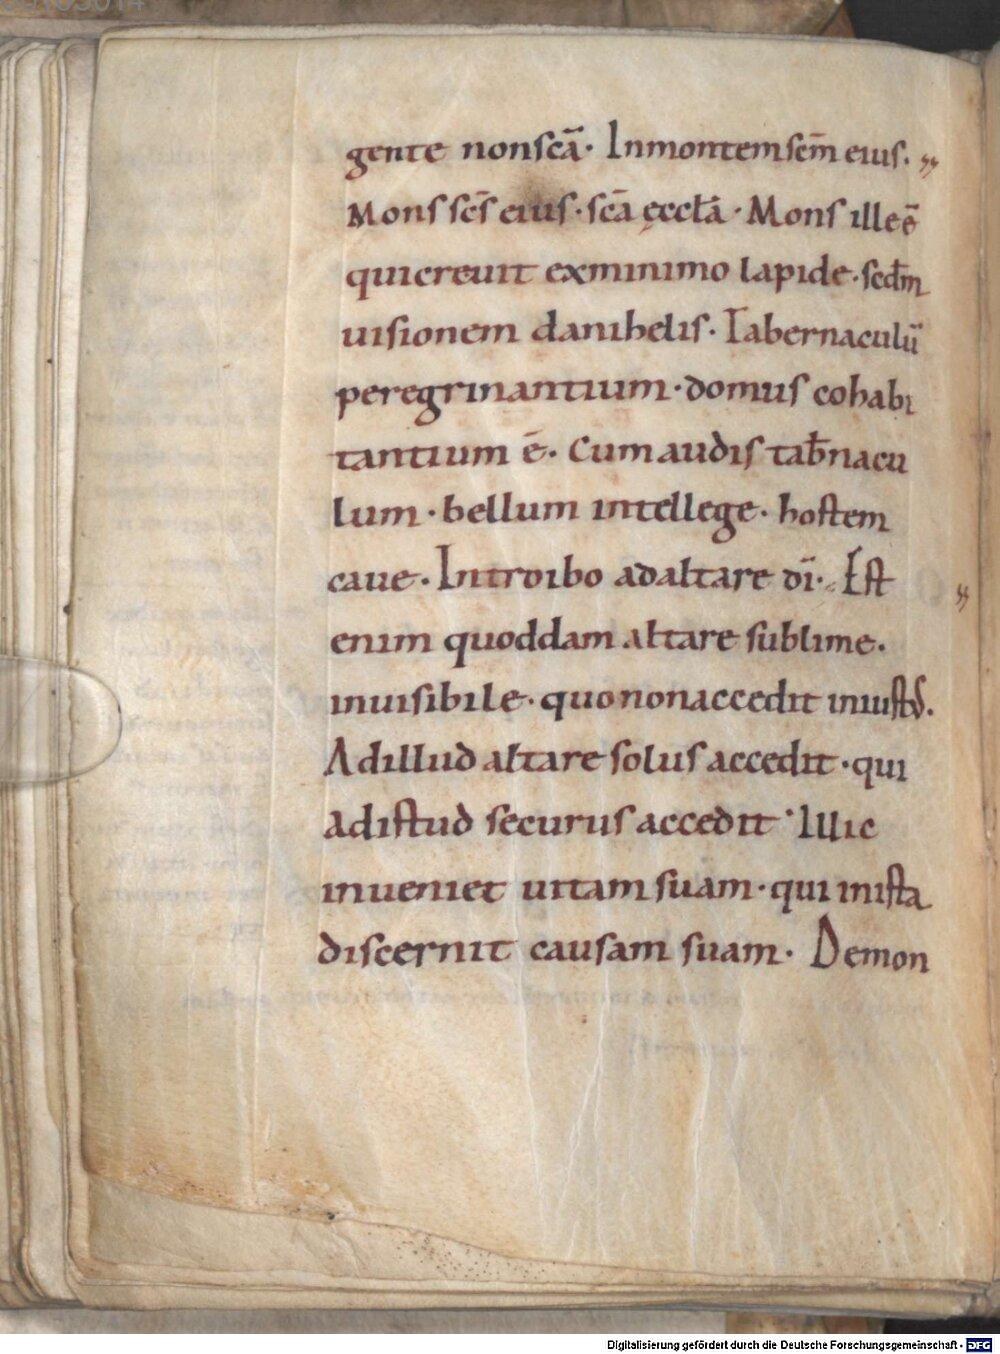 gente non scā· In montem scm̄ eius.
Mons scs̄ eius · scā ęccłā · Mons ille ē
qui creuit ex minimo lapide · scdm̄
uisionem danihelis · Tabernaculū
peregrinantium · domus cohabi
tantium ē · Cum audis tab̄nacu
lum · bellum intellege · hostem
caue · Introibo ad altare dī · Est
enim quoddam altare sublime ·
inuisibile · quo non accedit iniustus.
Ad illud altare solus accedit · qui
ad istud securus accedit · Illic
inueniet uitam suam · qui in ista
discernit causam suam · Demon
Digitalisierung gefördert durch die Deutsche Forschungsgemeinschaft · DFG